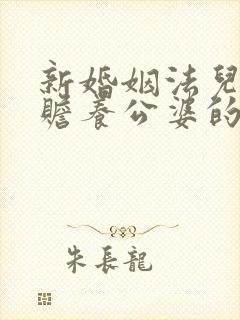 新婚姻法兒
贍養公婆的
朱長龍